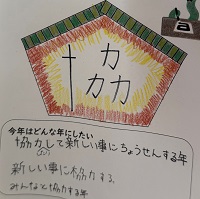 協
今年はどんな年にしたい
協力して新しい事にちょうせんする年
新しい事に協力する、
みんなと協力する年